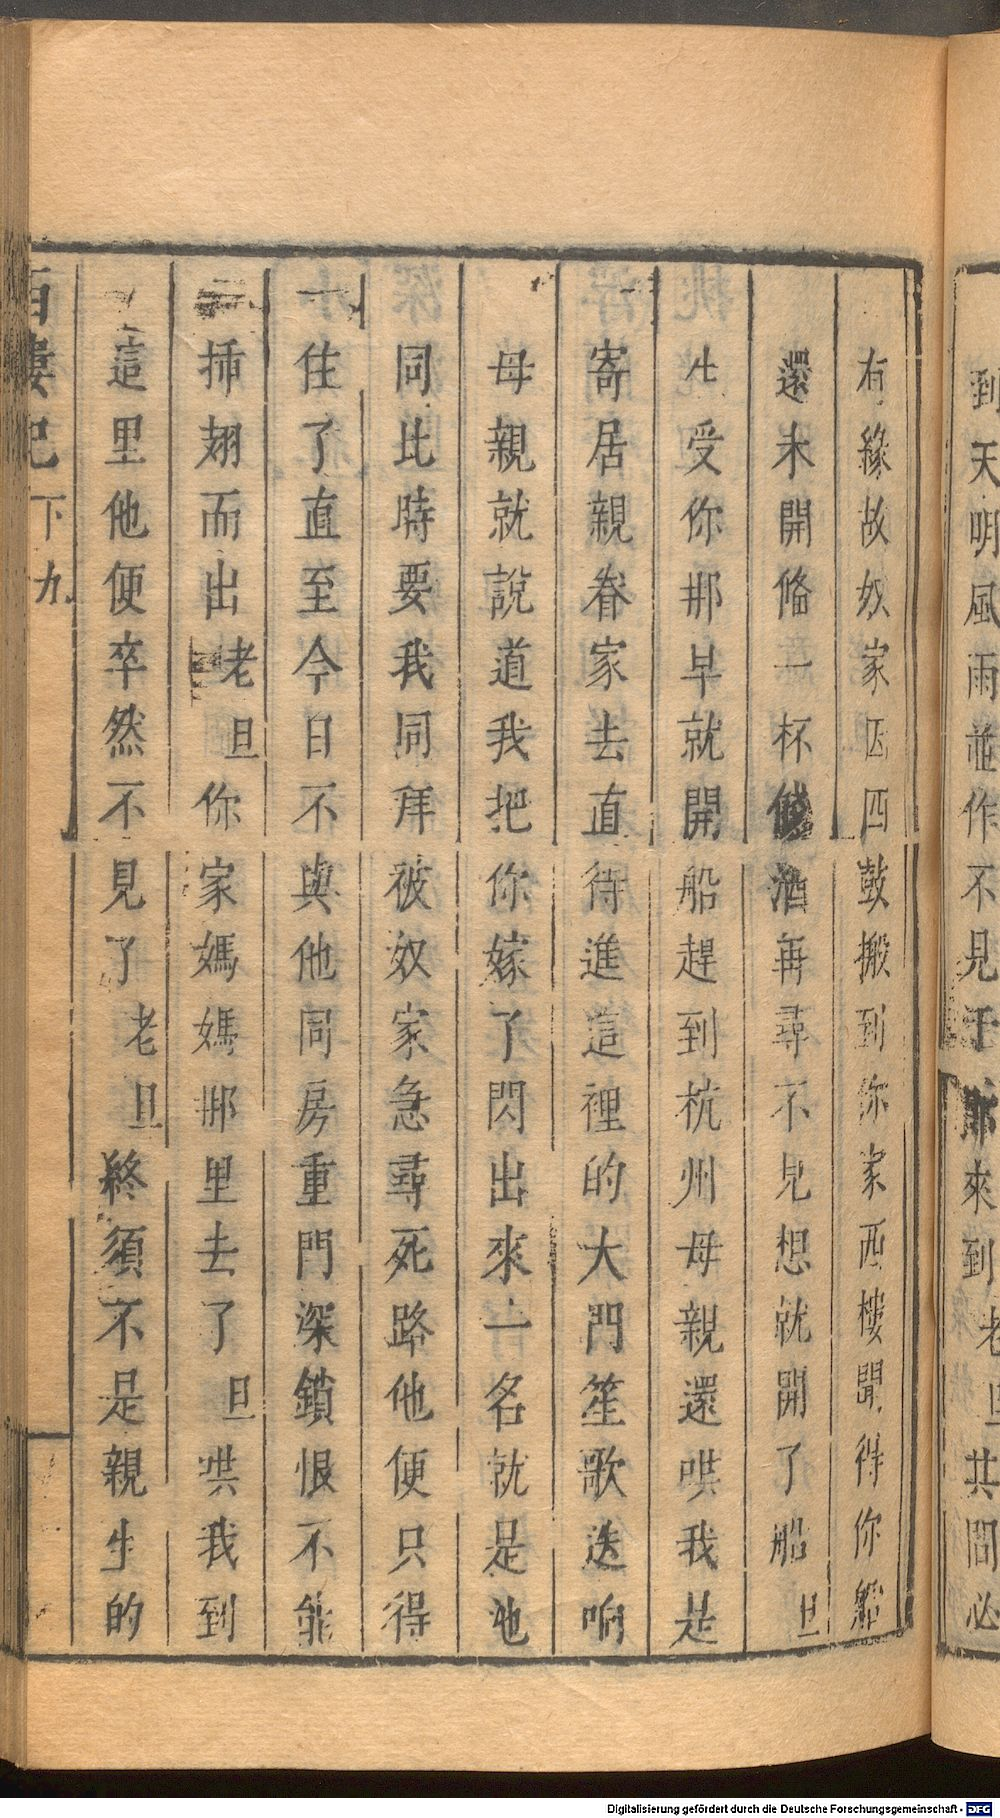 到天明風雨並作不見于郎來到老旦共問必
有緣故奴家因四鼓搬到你家西樓聞得你船
還未開俻一杯餞酒再尋不見想就開了船旦
生受你那早就開船趕到杭州母親還哄我是
寄居親眷家去直待進這裡的大門笙歌迭响
母親就說道我把你嫁了閃出來一名就是池
同比時要我同拜被奴家急尋死路他便只得
住了直至今日不與他同房重門深鎖恨不能
揷翅而出老旦你家媽媽那里去了旦哄我到
這里他便卒然不見了老旦終須不是親生的
西樓記下九
Digitalisierung gefördert durch die Deutsche Forschungsgemeinschaft - DFG